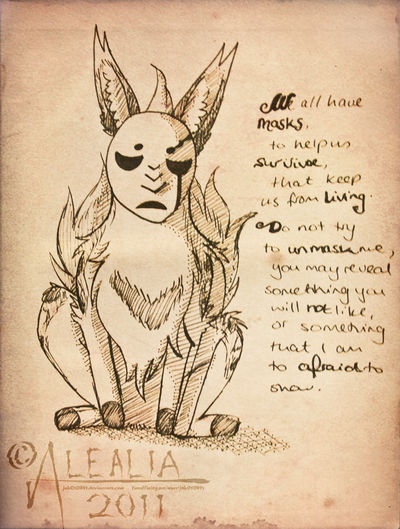 We all have
masks,
to help us
survive,
that keep
us from living.
Do not try
to unmask me,
you may reveal
something you
will not like,
or something
that I am
to afraid to
show.
© ALEALIA
2011